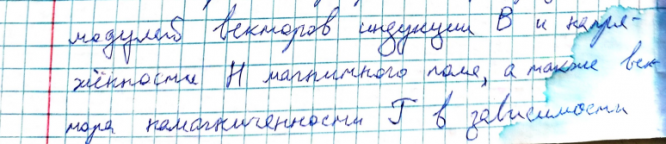 модулей векторов индукции B и напря-
жённости H магнитного поля, а также век
тора намагниченности J в зависимости